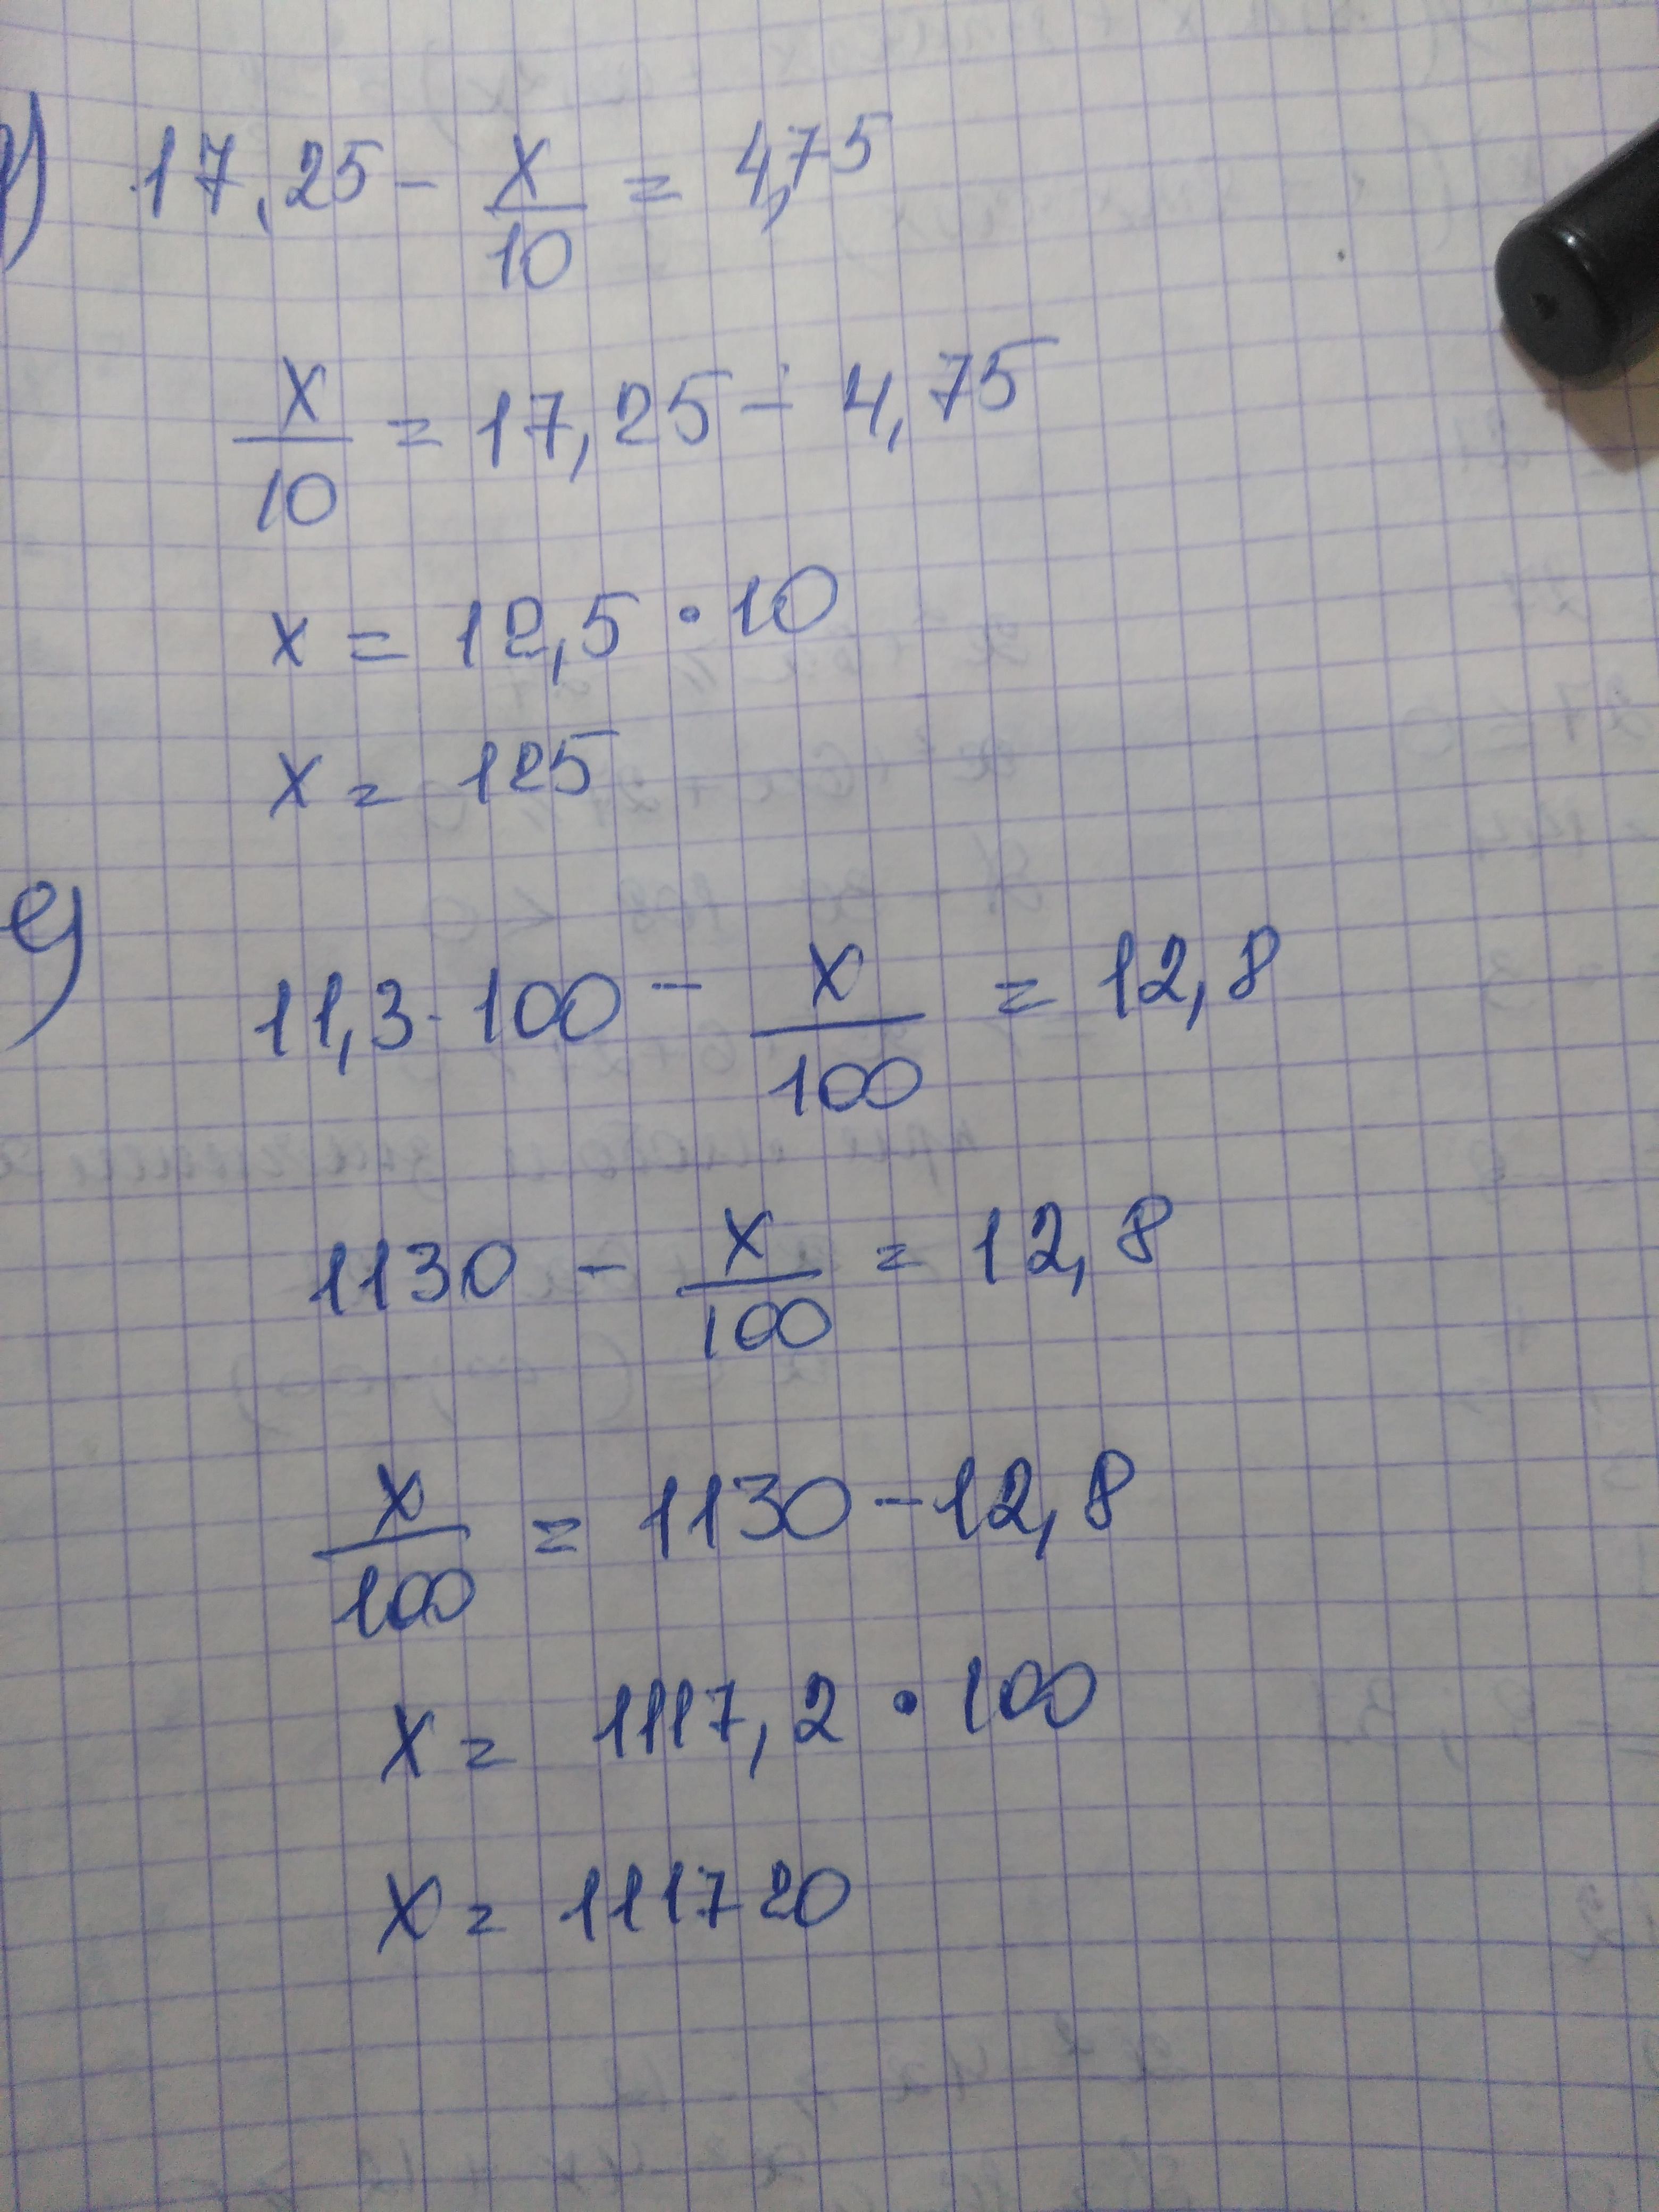 17,25 - x/10 = 4,75
x/10 = 17,25 - 4,75
x = 12,5 · 10
x = 125
e)
11,3 · 100 - x/100 = 12,8
1130 - x/100 = 12,8
x/100 = 1130 - 12,8
x = 1117,2 · 100
x = 111720